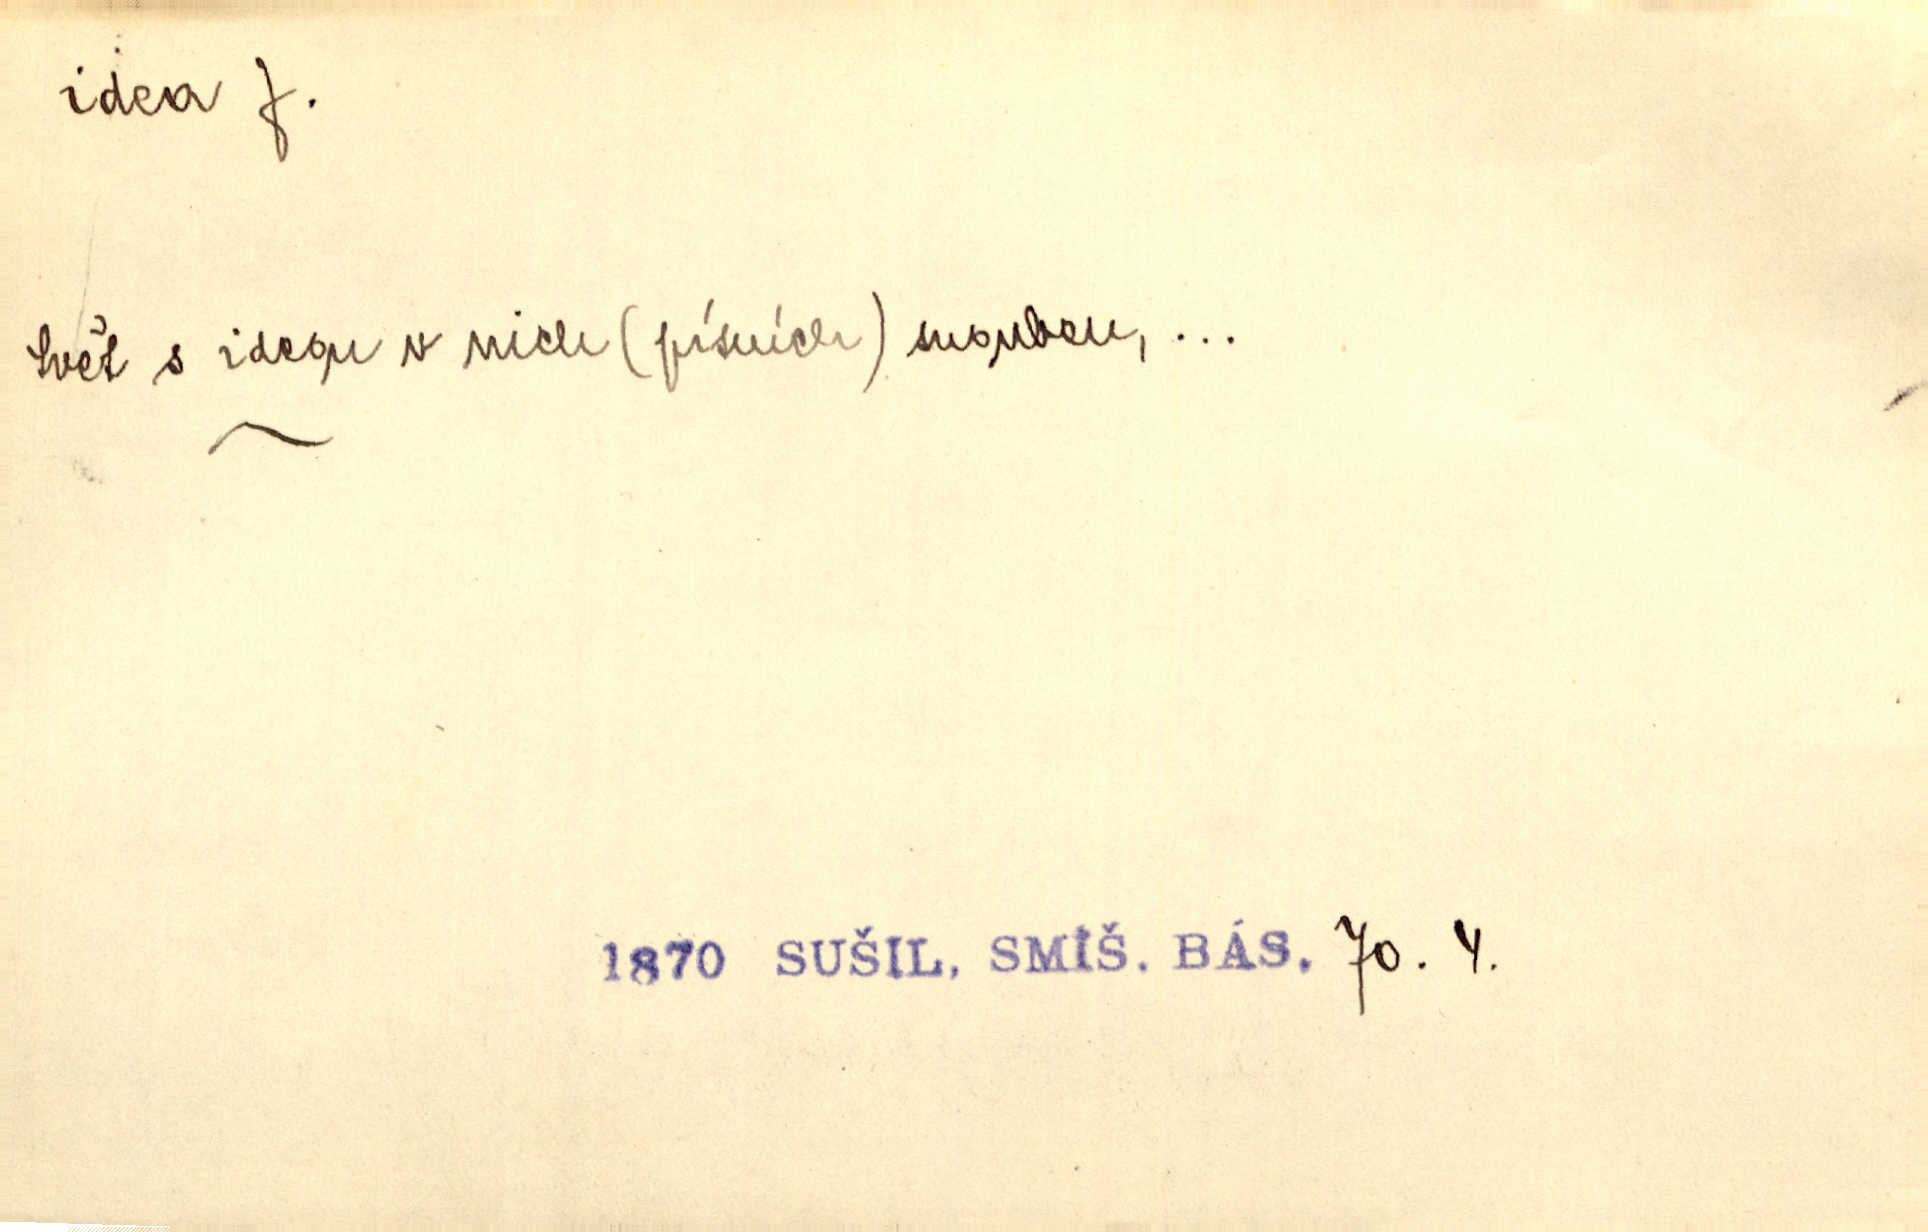 idea f.
svět s ideou v nich (písních) snouben, ...
1870 SUŠIL, SMÍŠ. BÁS. 70. 4.